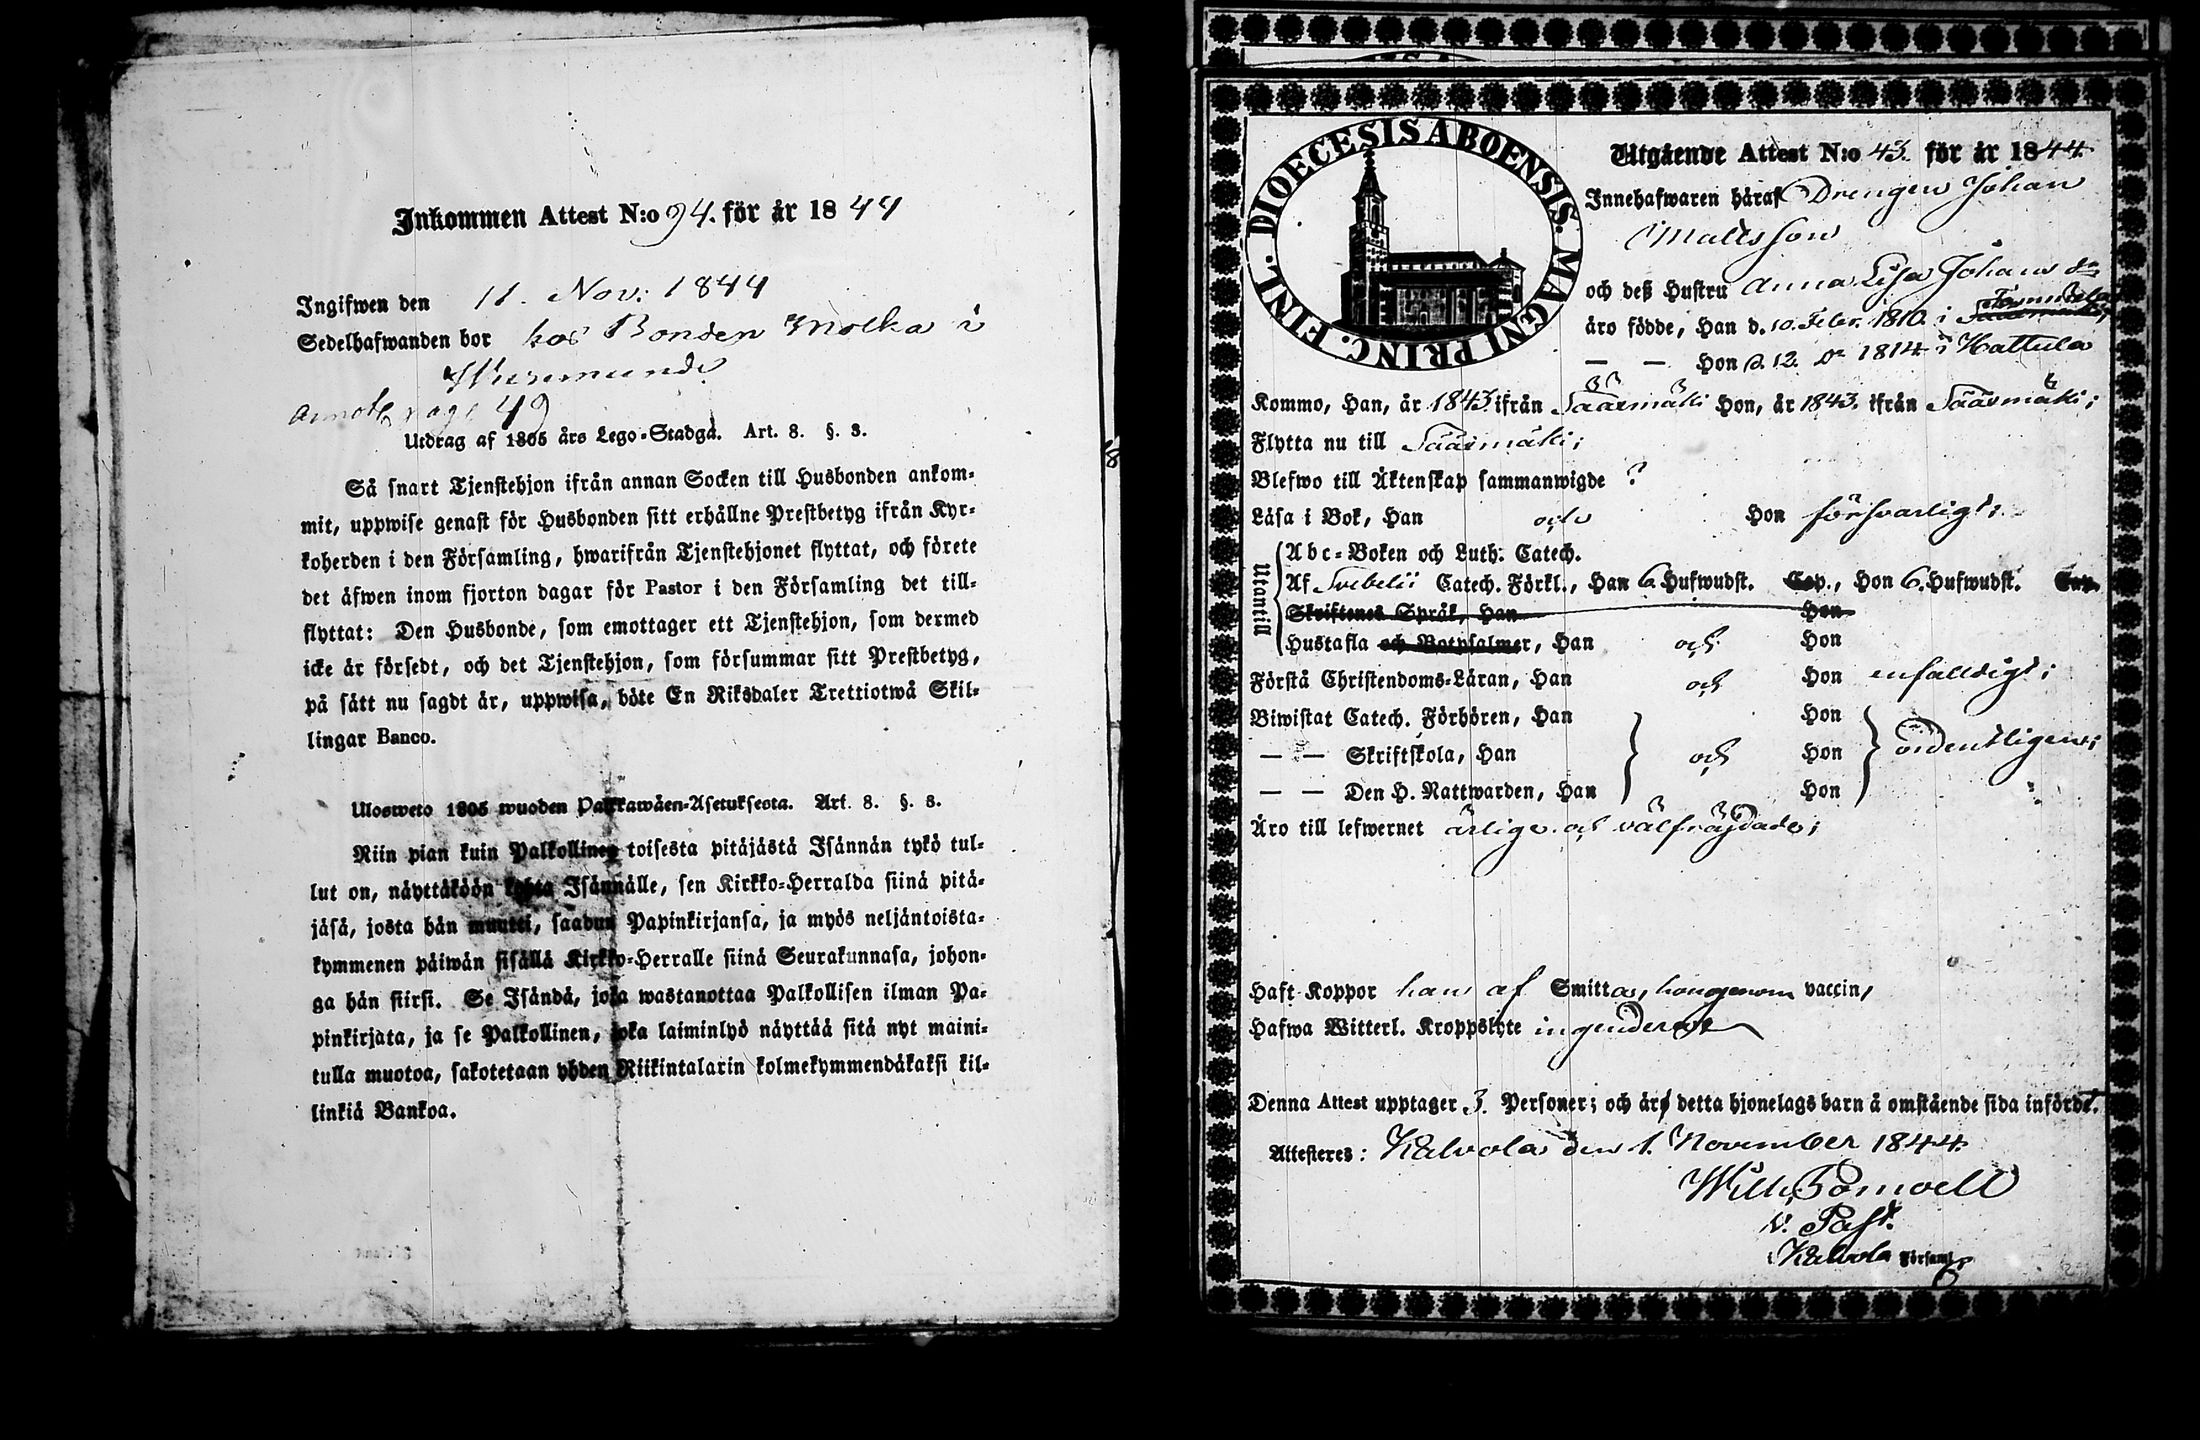 Inkommen Attest N:o 94. för år 1844
Ingifwen den 11. Nov: 1844
Sedelhafwanden bor hos Bonden Molka i
annot. pag: 49
Utdrag af 1805 års Lego-Stadga. Art. 8. §. 3.
Så snart Tjenstehjon ifrån annan Socken till Husbonden ankom-
mit, uppwise genast för Husbonden sitt erhållne Prestbetyg ifrån Kyr-
koherden i den Församling, hwarifrån Tjenstehjonet flyttat, och förete
det äfwen inom fjorton dagar för Pastor i den Församling det till-
flyttat: Den Husbonde, som emottager ett Tjenstehjon, som dermed
icke är försedt, och det Tjenstehjon, som försummar sitt Prestbetyg,
på sätt nu sagdt är, uppwisa, böte En Riksdaler Trettiotwå Skil-
lingar Banco.
Ulosweto 1805 wuoden Palkawäen-Asetuksesta. Art. 8. §. 3.
Niin pian kuin Palkollinen toisesta pitäjästä Isännän tykö tul-
lut on, näyttäköön kohta Isännälle, sen Kirkko-Herralda siinä pitä-
jäsä, josta hän muutti, saadun Papinkirjansa, ja myös neljäntoista-
kymmenen päiwän sisällä Kirkko-Herralle siinä Seurakunnasa, johon-
ga hän siirsi. Se Isändä, joka wastanottaa Palkollisen ilman Pa-
pinkirjata, ja se Palkollinen, joka laiminlyö näyttää sitä nyt maini-
tulla muotoa, sakotetaan yhden Riikintalarin kolmekymmendäkaksi kil-
linkiä Bankoa.
DIOECESIS ABOENSIS. MAGNI PRINC. FINL.
Utgående Attest N:o 43. för år 1844.
Innehafwaren häraf Drengen Johan
Mattsson
och deß Hustru Anna Lisa Johans dr
äro födde, Han d. 10. Febr. 1810. i
— — Hon d. 12. Do 1814 i Hattula
Kommo, Han, år 1843 ifrån Sääsmäki Hon, år 1843. ifrån Sääsmäki;
Flytta nu till Sääsmäki;
Blefwo till Äktenskap sammanwigde ?
Läsa i Bok, Han och Hon försvarligt;
Utantill
Abc-Boken och Luth. Catech.
Af Svebelii Catech. Förkl., Han 6. Hufwudst. Cap., Hon 6. Hufwudst. Cap.
Skriftenes Språk, Han Hon
Hustafla och Botpsalmer, Han och Hon
Förstå Christendoms-Läran, Han och Hon enfalldigt;
Biwistat Catech. Förhören, Han Hon
— — Skriftskola, Han och Hon ordentligen;
— — Den H. Nattwarden, Han Hon
Äro till lefwernet ärlige och välfräjdade;
Haft Koppor han af Smittas, hon genom vaccin,
Hafwa Witterl. Kroppslyte ingendera
Denna Attest upptager 3. Personer; och äro detta hjonelags barn å omstående sida införde.
Attesteres: Kalvola den 1. November 1844.
Wilh. Pomoell
v. Past.
i Kalvola Församl.